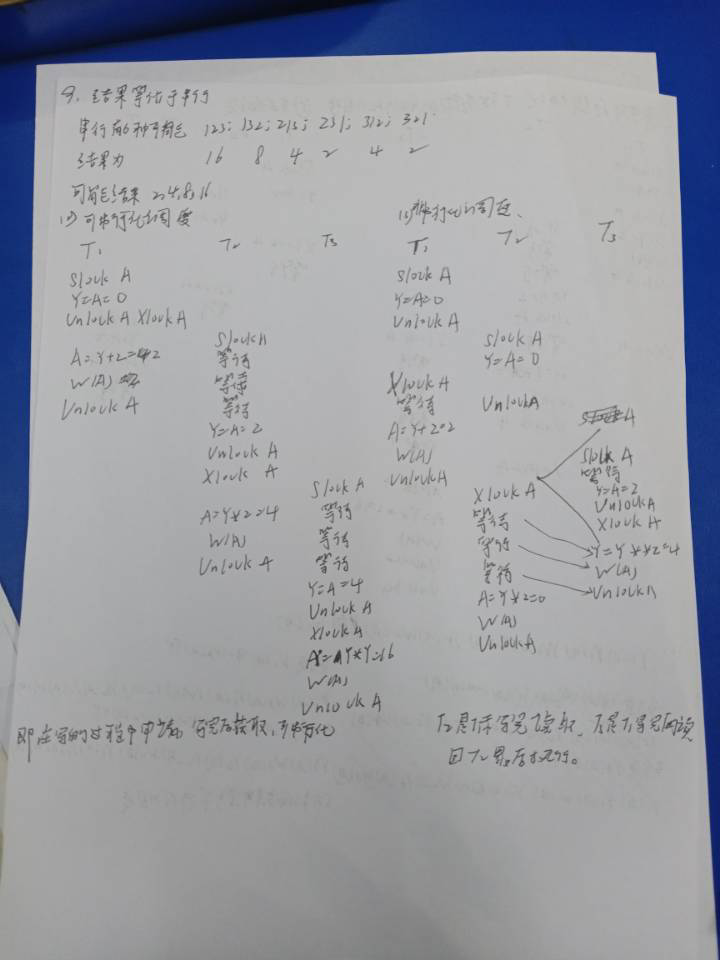 9. 结果等价于串行
串行有6种可能 123; 132; 213; 231; 312; 321.
结果为 16 8 4 2 4 2
可能结果 2,4,8,16
可串行化的调度
T₁ T₂ T₃
Slock A
Y=A=0
Unlock A Xlock A
Slock A
A=Y+2=2 等待
W(A) 等待
Unlock A 等待
Y=A=2
Unlock A
Xlock A
Slock A
A=Y*2=4 等待
W(A) 等待
Unlock A 等待
Y=A=4
Unlock A
Xlock A
A=Y*Y=16
W(A)
Unlock A
即在写的过程中申请,写完后获取,可串行化
非串行化的调度
T₁ T₂ T₃
Slock A
Y=A=0
Unlock A
Slock A
Y=A=0
Xlock A
等待 Unlock A
A=Y+2=2
W(A)
Unlock A
Slock A
等待
Xlock A Y=A=2
等待 Unlock A
Xlock A
等待 Y=Y**2=4
等待 W(A)
A=Y*2=0 Unlock A
W(A)
Unlock A